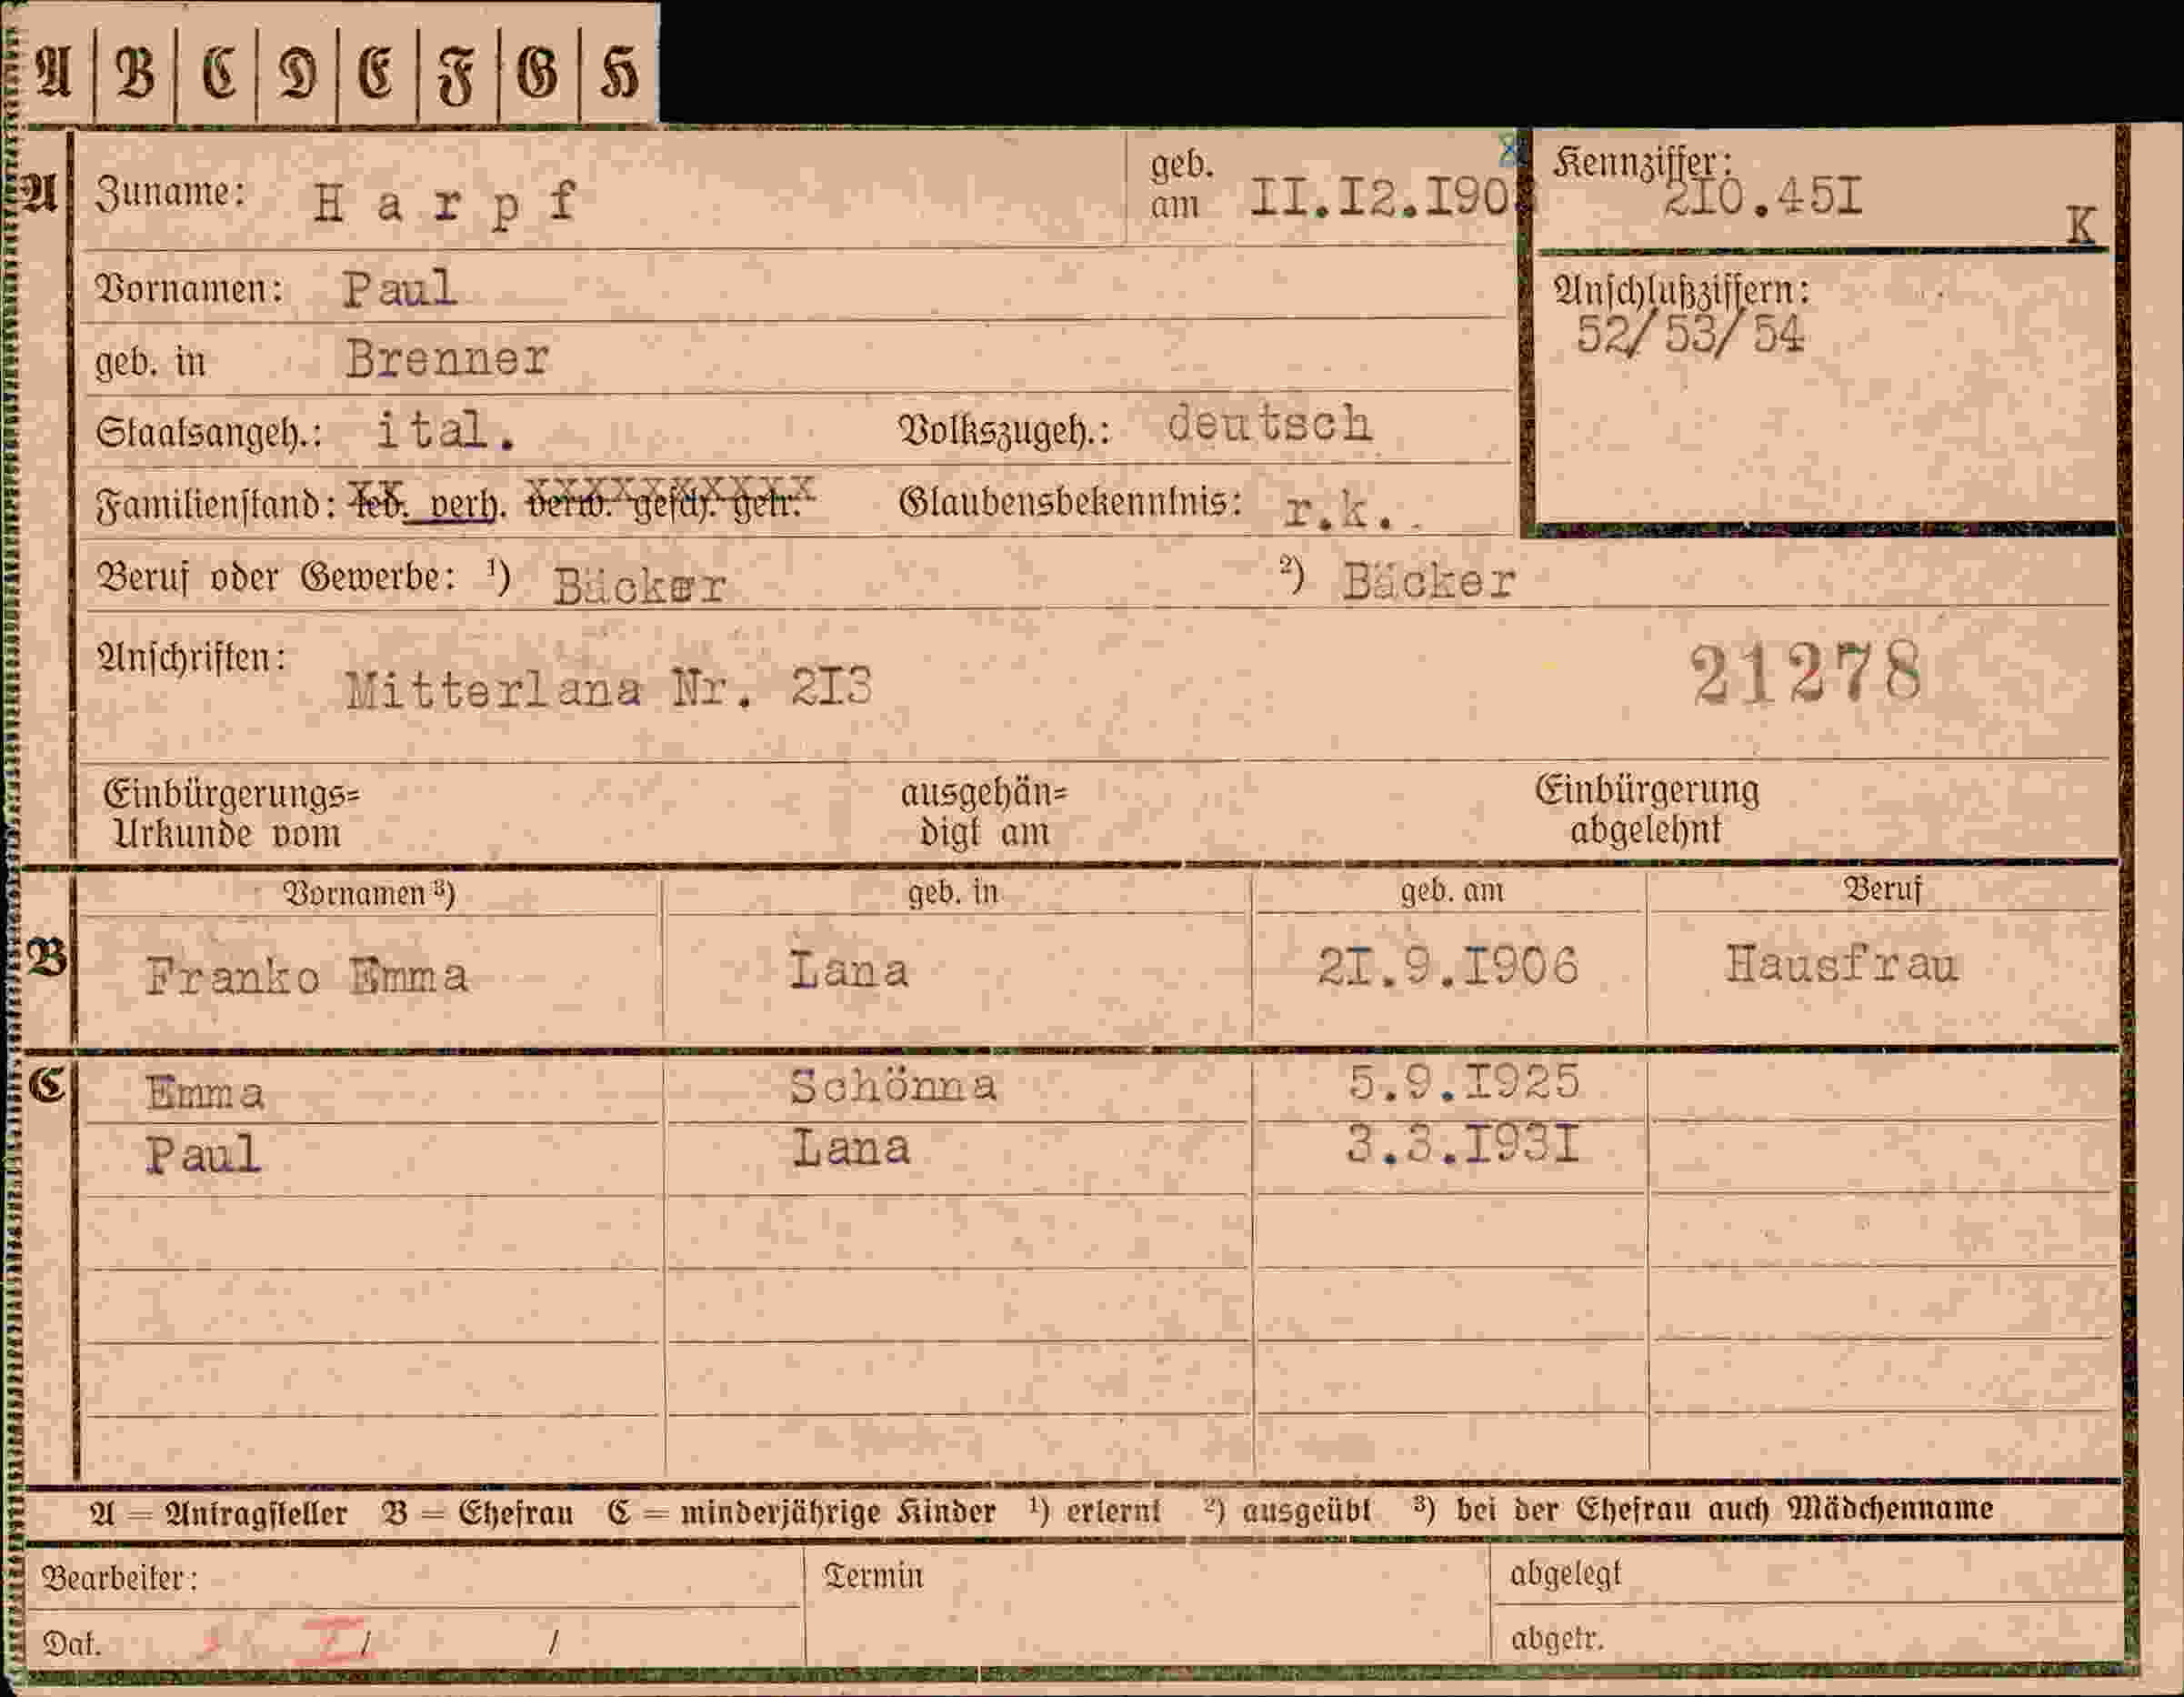 A B C D E F G H
A Zuname: Harpf geb. am II.I2.I90 Kennziffer: 2I0.45I K
Vornamen: Paul Anschlußziffern:
52/53/54
geb. in Brenner
Staatsangeh.: ital. Volkszugeh.: deutsch
Familienstand: led. verh. verw. gesch. getr. Glaubensbekenntnis: r.k.
Beruf oder Gewerbe: ¹) Bäcker ²) Bäcker
Anschriften: Mitterlana Nr. 2I3 21278
Einbürgerungs= ausgehän= Einbürgerung
Urkunde vom digt am abgelehnt
Vornamen ³) geb. in geb. am Beruf
B Franko Emma Lana 2I.9.I906 Hausfrau
C Emma Schönna 5.9.I925
Paul Lana 3.3.I93I
A = Antragsteller B = Ehefrau C = minderjährige Kinder ¹) erlernt ²) ausgeübt ³) bei der Ehefrau auch Mädchenname
Bearbeiter: Termin abgelegt
Dat. I / / abgetr.